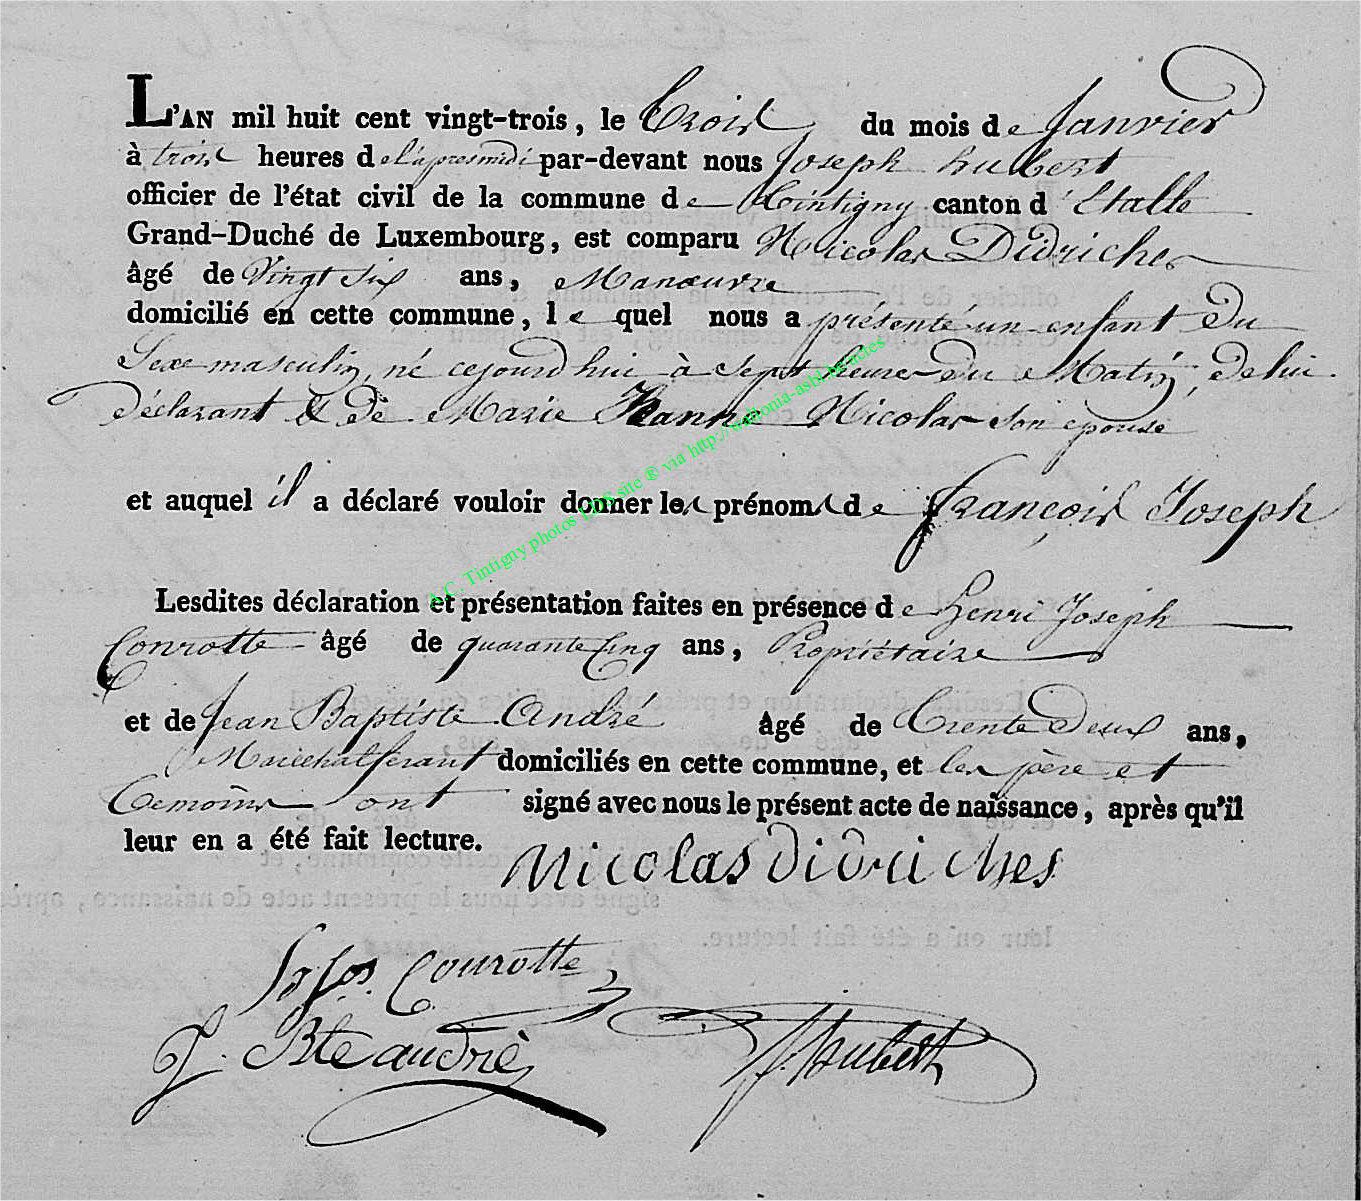 L'AN mil huit cent vingt-trois, le trois du mois de Janvier
à trois heures de l'apresmidi par-devant nous Joseph hubert
officier de l'état civil de la commune de Tintigny canton d'Etalle
Grand-Duché de Luxembourg, est comparu Nicolas Didriches
âgé de Vingt six ans, Manœuvre
domicilié en cette commune, le quel nous a présenté un enfant du
Sexe masculin, né cejourd'hui à sept heures du Matin, de lui
déclarant & de Marie Jeanne Nicolas son epouse
et auquel il a déclaré vouloir donner les prénoms de françois Joseph
Lesdites déclaration et présentation faites en présence de henri Joseph
Conrotte âgé de quarante Cinq ans, Propriétaire
et de Jean Baptiste André âgé de Trente deux ans,
Maréchal ferant domiciliés en cette commune, et les père et
temoins ont signé avec nous le présent acte de naissance, après qu'il
leur en a été fait lecture.
Nicolas didriches
Conrotte
J. Bte andrie
J. Hubert
A.C. Tintigny photos LDS site ® via http://wallonia-asbl.be/actes